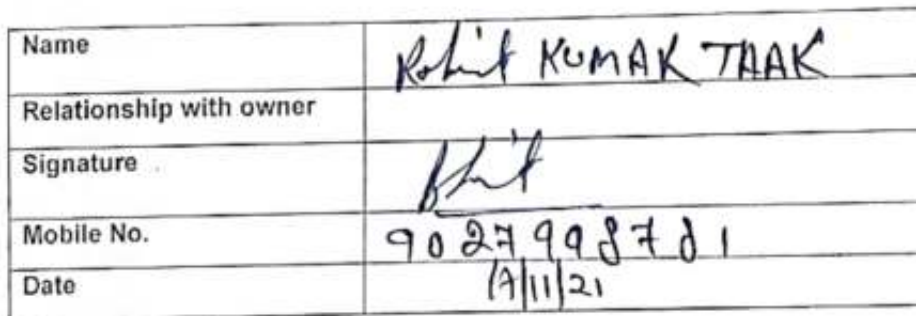 Name Rohit KUMAR TAAK
Relationship with owner
Signature Rohit
Mobile No. 9027998781
Date 17/11/21